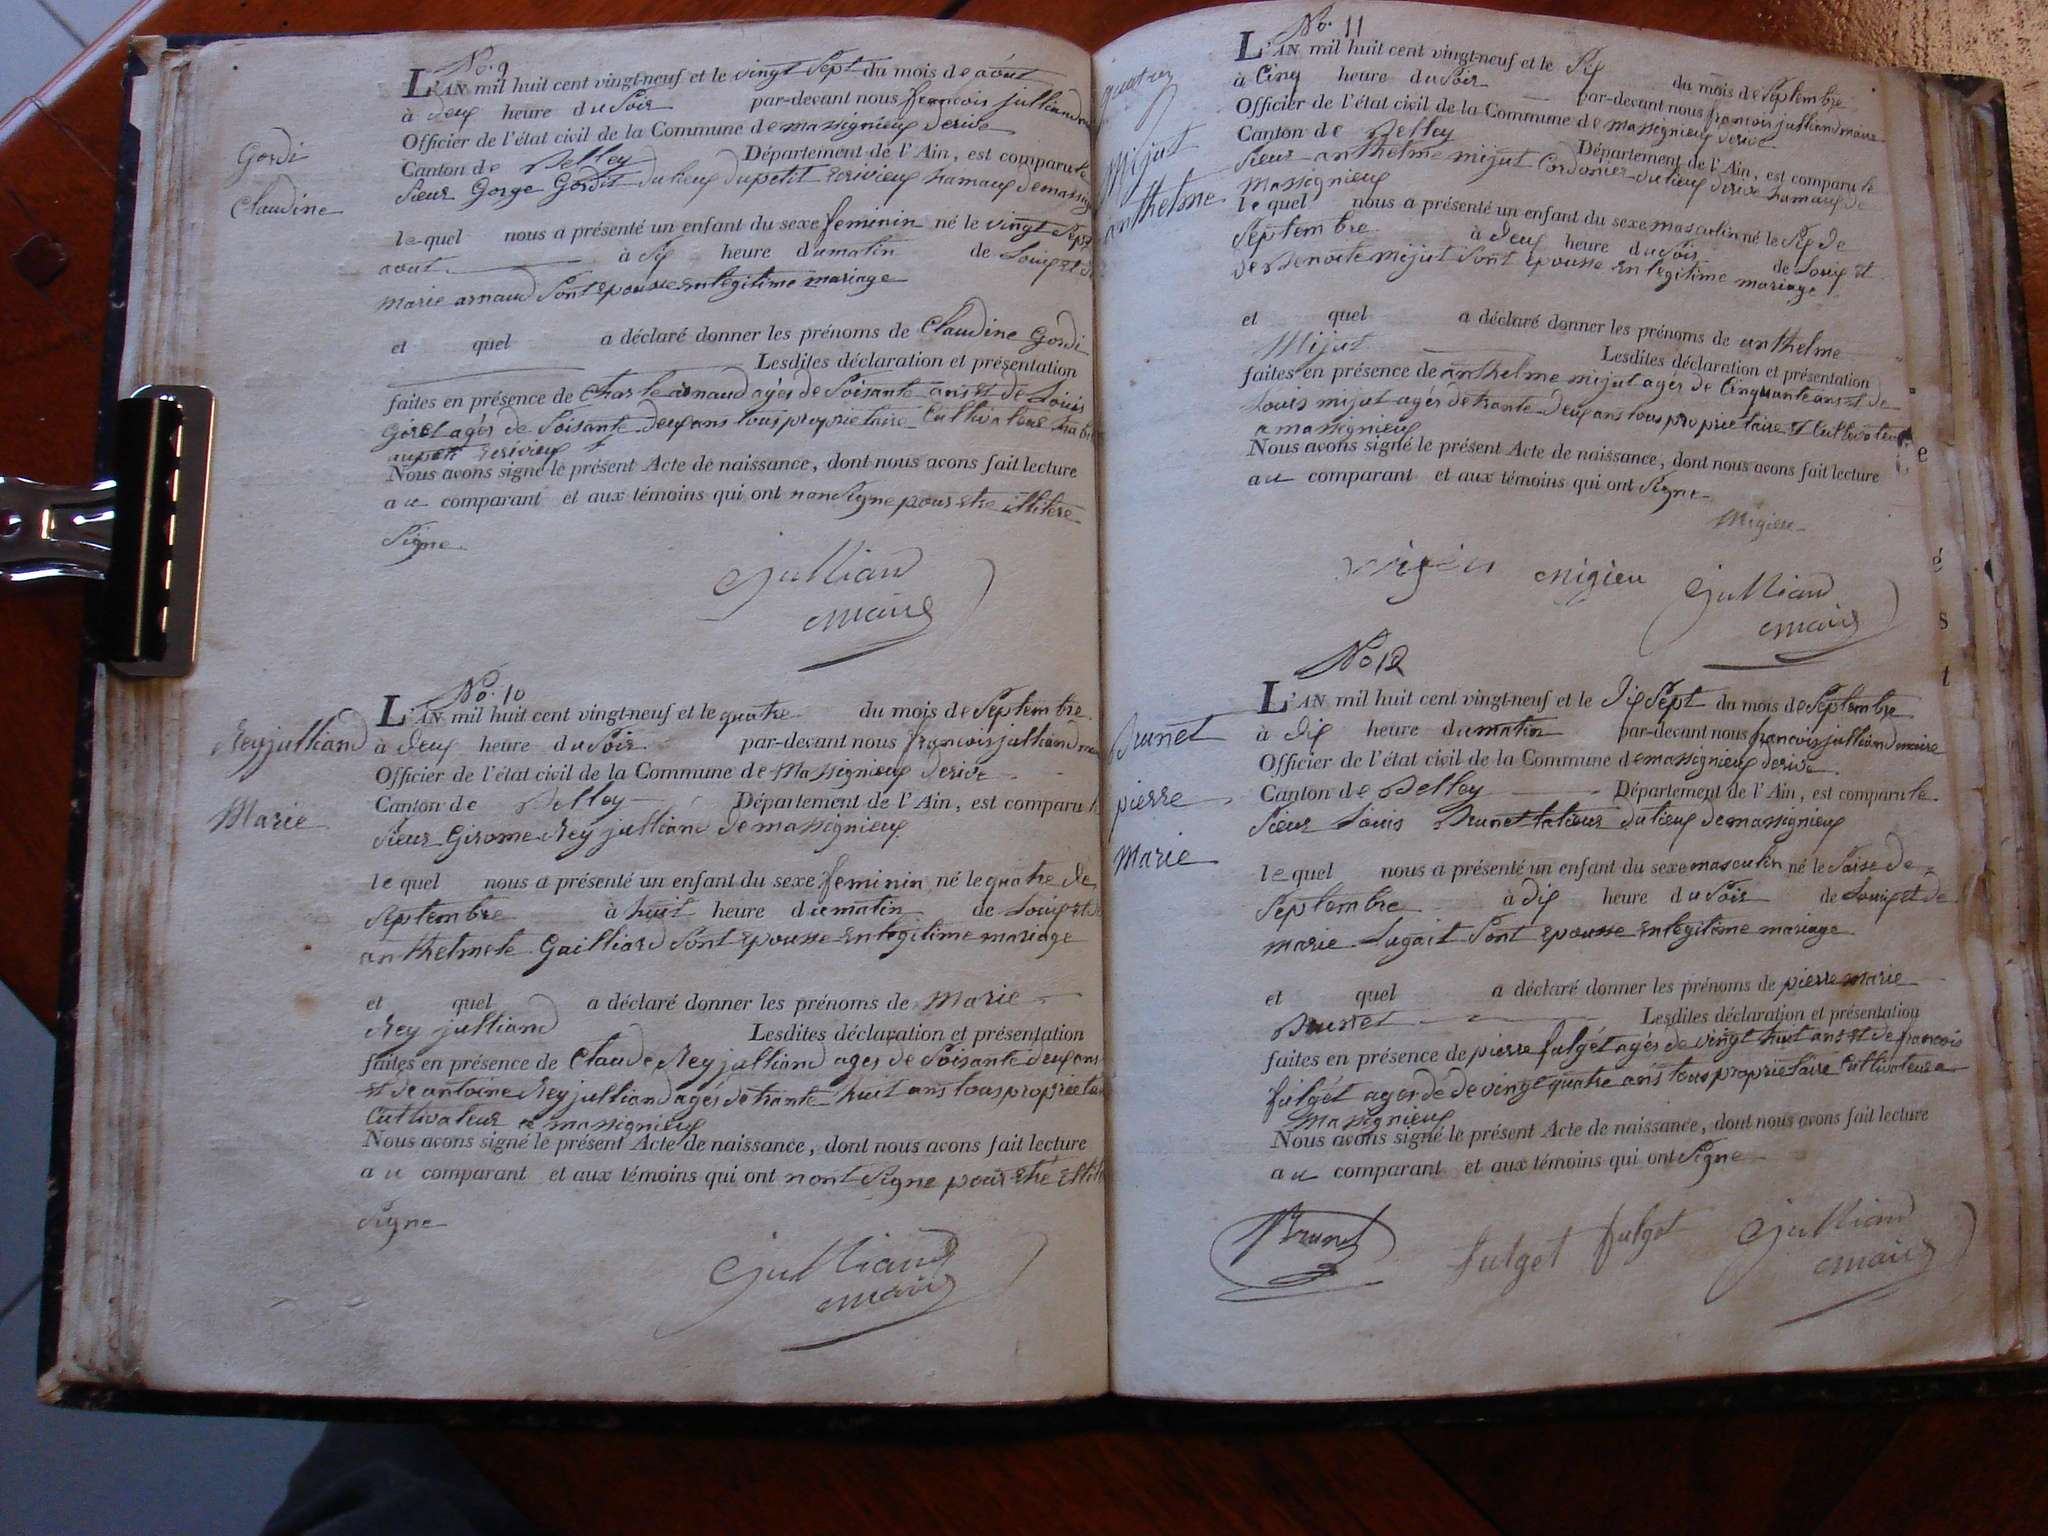 No. 9
L'AN mil huit cent vingt-neuf et le vingt Sept du mois de aout
à deux heure du Soir par-devant nous francois julliand
Officier de l'état civil de la Commune de massignieux derive
Gordi
Canton de Belley Département de l'Ain, est comparu le
Claudine
Sieur Gorge Gordit du lieux du petit hamaux de
le quel nous a présenté un enfant du sexe feminin né le vingt Sept
aout à Six heure du matin de Louis et d
marie arnaud Sont epousse en legitime mariage
et quel a déclaré donner les prénoms de Claudine Gordi
Lesdites déclaration et présentation
faites en présence de Charle arnaud agés de Soisante ans et de Louis
agés de Soisante deux ans tous proprietaire Cultivateur
au petit
Nous avons signé le présent Acte de naissance, dont nous avons fait lecture
au comparant et aux témoins qui ont non Signe pour etre illitere
Signe
Julliand
maire
No. 10
L'AN mil huit cent vingt-neuf et le quatre du mois de Septembre
Rey julliand
à deux heure du Soir par-devant nous francois julliand
Officier de l'état civil de la Commune de Massignieux derive
Canton de Belley Département de l'Ain, est comparu
Marie
Sieur Girome Rey julliand de massignieux
le quel nous a présenté un enfant du sexe feminin né le quatre de
Septembre à huit heure du matin de Louis et d
anthelmete Gailliard Sont epousse en legitime mariage
et quel a déclaré donner les prénoms de Marie
Rey julliand Lesdites déclaration et présentation
faites en présence de Claude Rey julliand agés de Soisante deux ans
et de antoine Rey julliand agés de trante huit ans tous
Cultivateur a massignieux
Nous avons signé le présent Acte de naissance, dont nous avons fait lecture
au comparant et aux témoins qui ont nont Signe pour etre
Signe
Julliand
maire
No. 11
L'AN mil huit cent vingt-neuf et le Six du mois de Septembre
à Cinq heure du Soir par-devant nous francois julliand maire
Officier de l'état civil de la Commune de massignieux derive
Mijut
Canton de Belley Département de l'Ain, est comparu le
anthelme
Sieur anthelme mijut Cordonier du lieux derive hamaux de
Massignieux
le quel nous a présenté un enfant du sexe masculin né le Six de
Septembre à deux heure du Soir de Louis et
de Benoite mijut Sont epousse en legitime mariage
et quel a déclaré donner les prénoms de anthelme
Mijut Lesdites déclaration et présentation
faites en présence de anthelme mijut agés de Cinquante ans et de
Louis mijut agés de trante deux ans tous proprietaire et Cultivateur
a massignieux
Nous avons signé le présent Acte de naissance, dont nous avons fait lecture
au comparant et aux témoins qui ont Signe
Migieu
migieu Julliand
maire
No 12
L'AN mil huit cent vingt-neuf et le Dix Sept du mois de Septembre
Brunet
à dix heure du matin par-devant nous francois julliand maire
Officier de l'état civil de la Commune de massignieux derive
pierre
Canton de Belley Département de l'Ain, est comparu le
Sieur Louis Brunet du lieux de massignieux
Marie
le quel nous a présenté un enfant du sexe masculin né le Saise de
Septembre à dix heure du Soir de Louis et de
marie Lugait Sont epousse en legitime mariage
et quel a déclaré donner les prénoms de pierre marie
Brunet Lesdites déclaration et présentation
faites en présence de pierre fulgét agés de vingt huit ans et de francois
fulgét agés de de vingt quatre ans tous proprietaire Cultivateur a
Massignieux
Nous avons signé le présent Acte de naissance, dont nous avons fait lecture
au comparant et aux témoins qui ont Signe
Brunet fulget fulget Julliand
maire